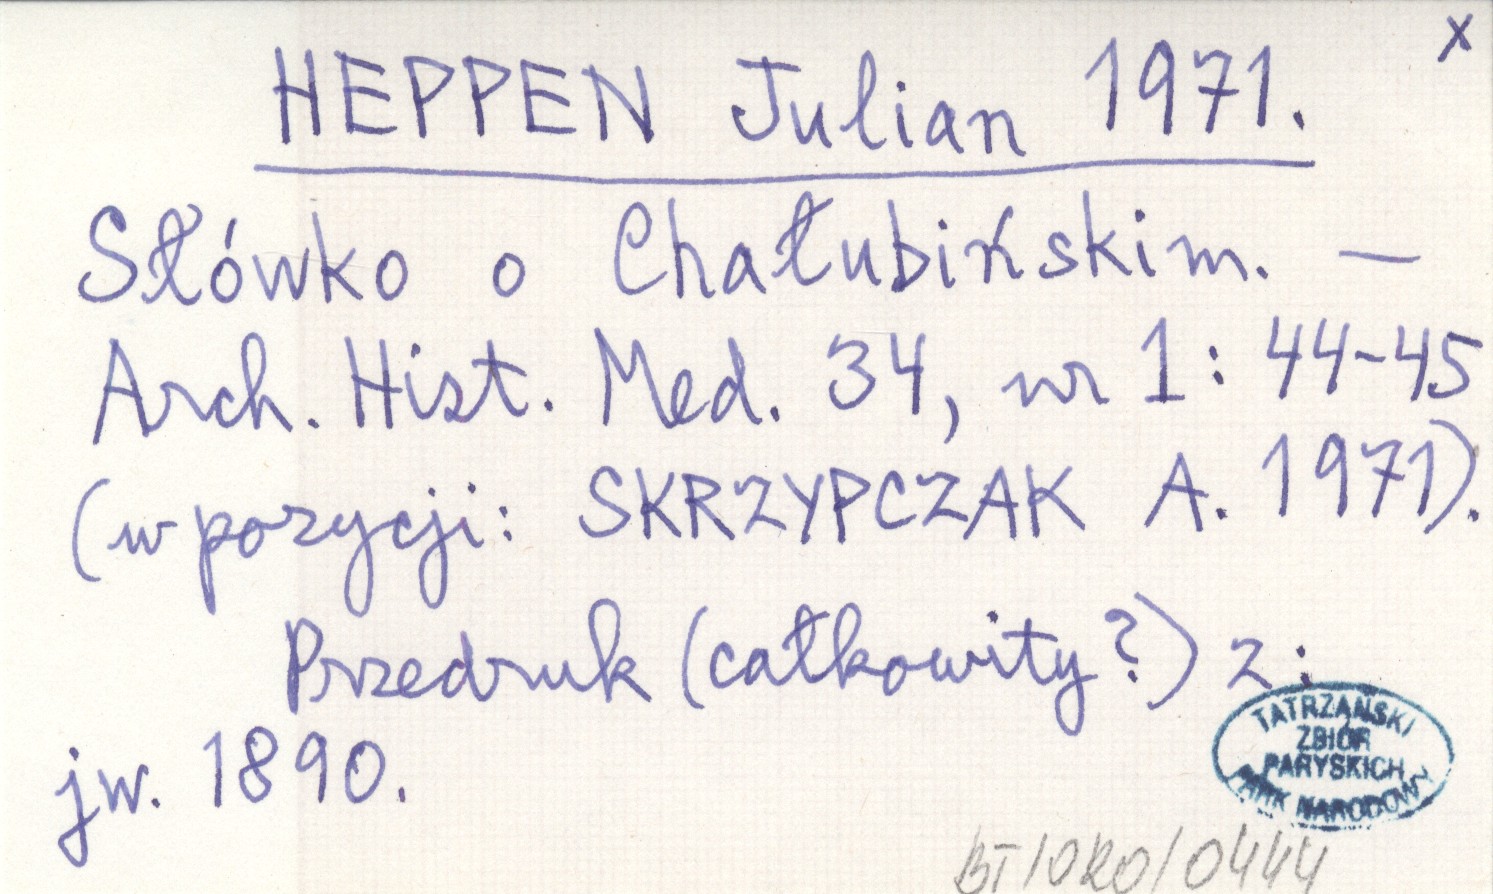 x
HEPPEN Julian 1971.
Słówko o Chałubińskim. —
Arch. Hist. Med. 34, nr 1: 44-45
(w pozycji: SKRZYPCZAK A. 1971).
Przedruk (całkowity?) z:
jw. 1890.
TATRZAŃSKI
ZBIÓR
PARYSKICH
PARK NARODOWY
BT/ORO/0444